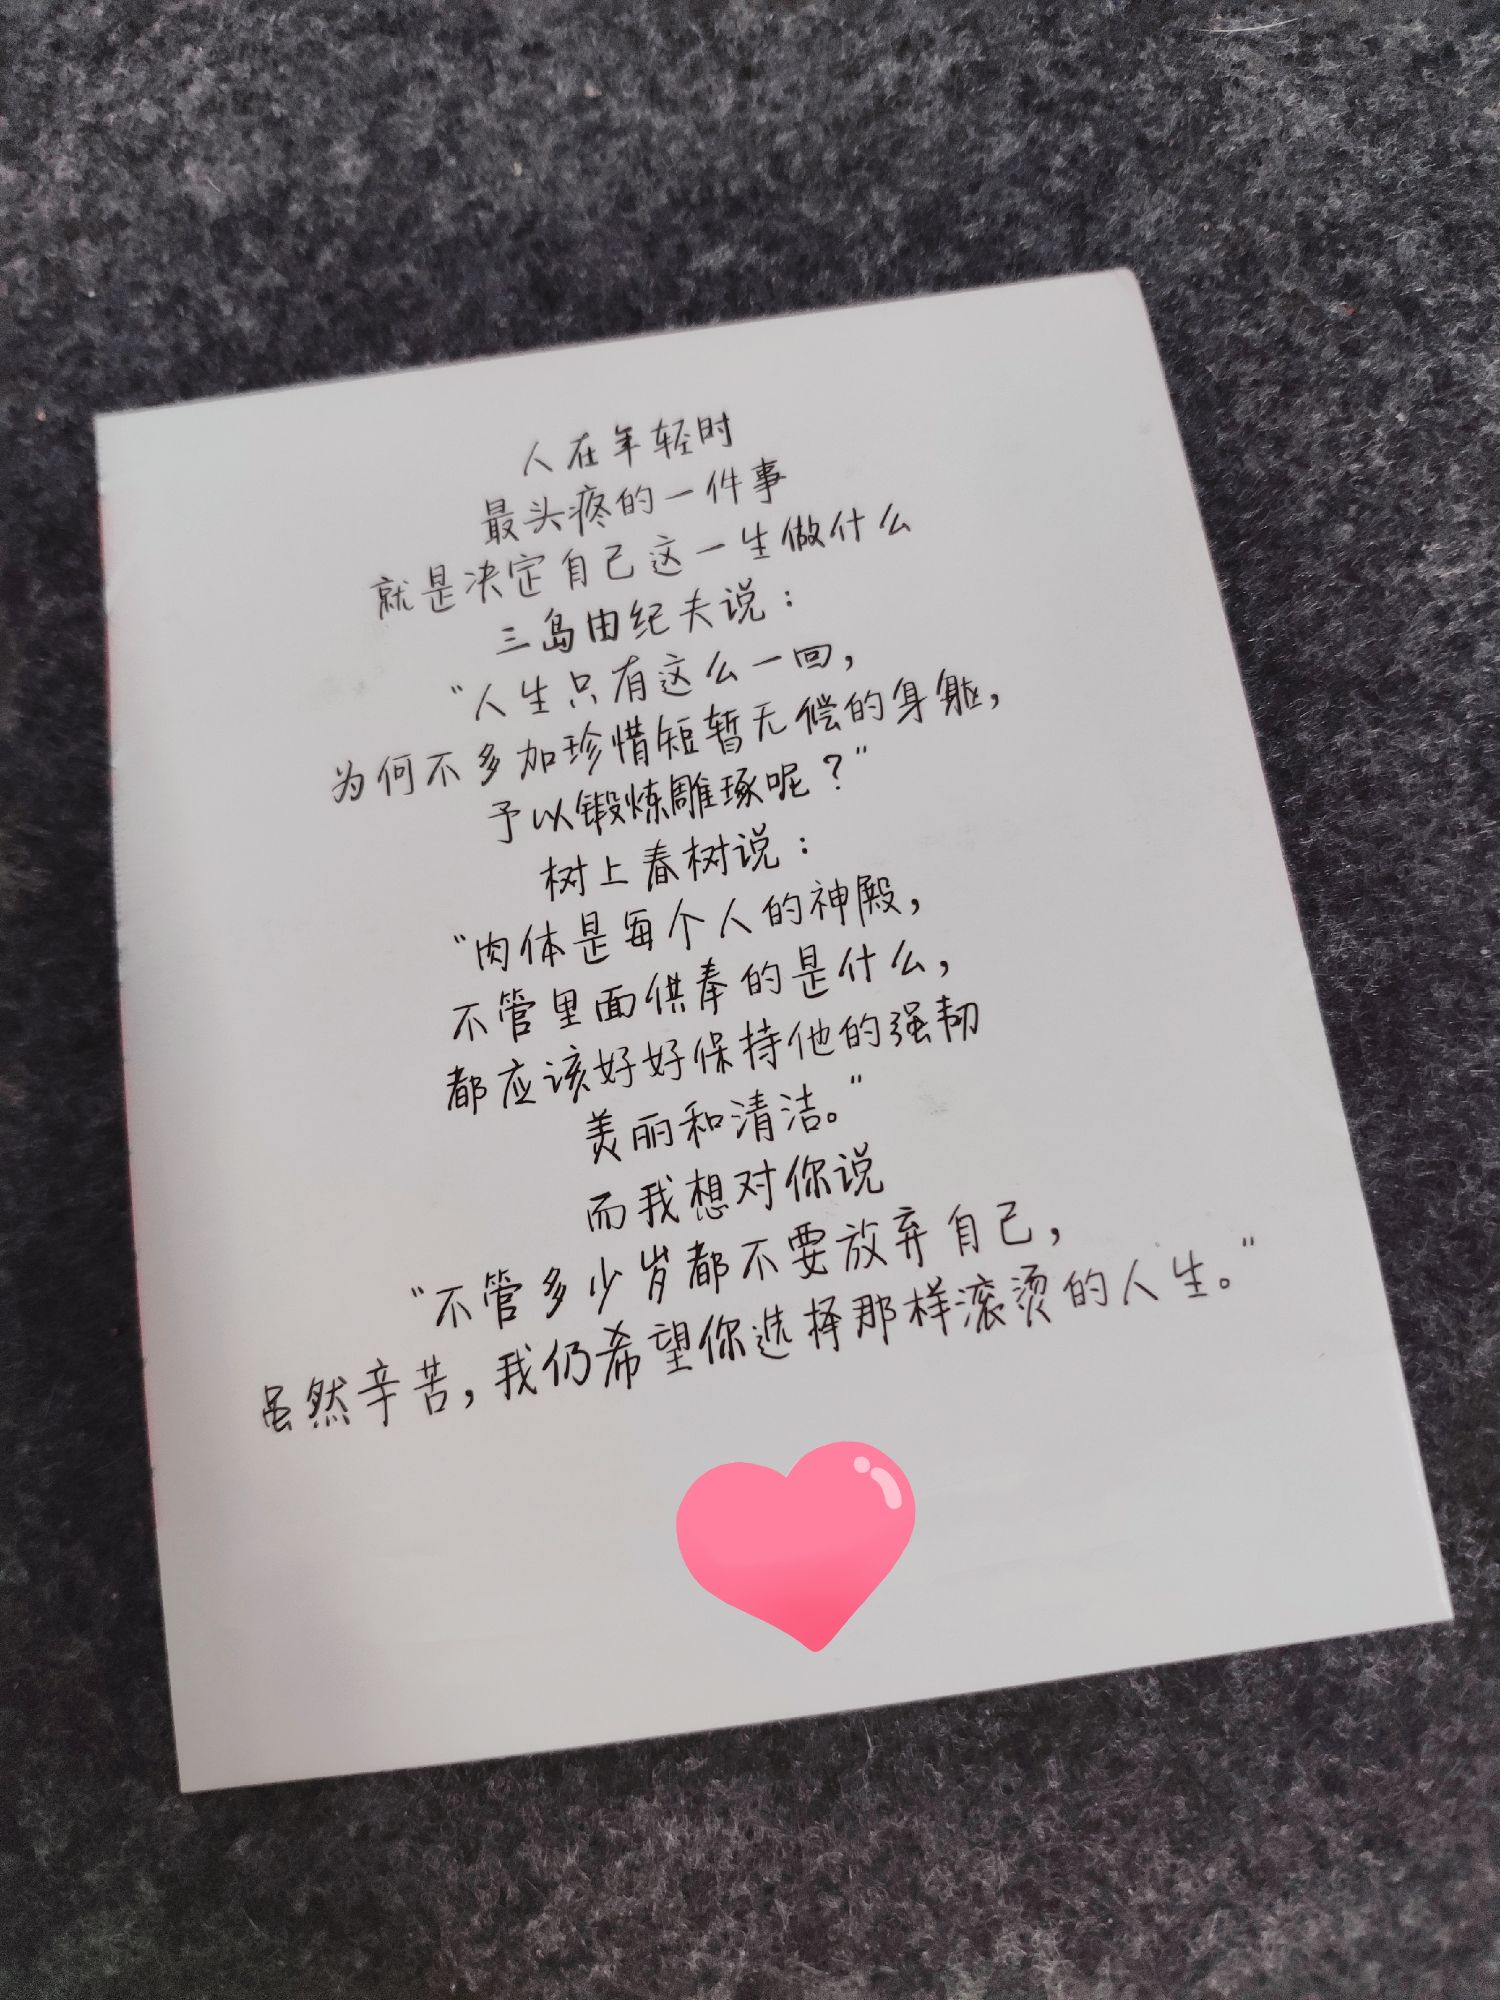 人在年轻时
最头疼的一件事
就是决定自己这一生做什么
三岛由纪夫说：
“人生只有这么一回，
为何不多加珍惜短暂无偿的身躯，
予以锻炼雕琢呢？”
树上春树说：
“肉体是每个人的神殿，
不管里面供奉的是什么，
都应该好好保持他的强韧
美丽和清洁。”
而我想对你说
“不管多少岁都不要放弃自己，
虽然辛苦，我仍希望你选择那样滚烫的人生。”